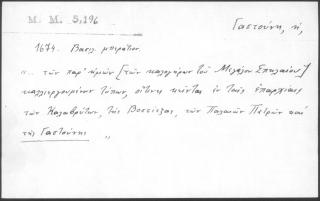 Μ. Μ. 5,196
Γαστούνη, ἡ,
1674. Βασιλ. μπεράτιον.
«.. τῶν παρ' ἡμῶν [τῶν καλογήρων τοῦ Μεγάλου Σπηλαίου]
καλλιεργουμένων τόπων, οἵτινες κεῖνται ἐν ταῖς ἐπαρχίαις
τῶν Καλαβρύτων, τῆς Βοστίτζας, τῶν Παλαιῶν Πατρῶν καὶ
τῆς Γαστούνης »